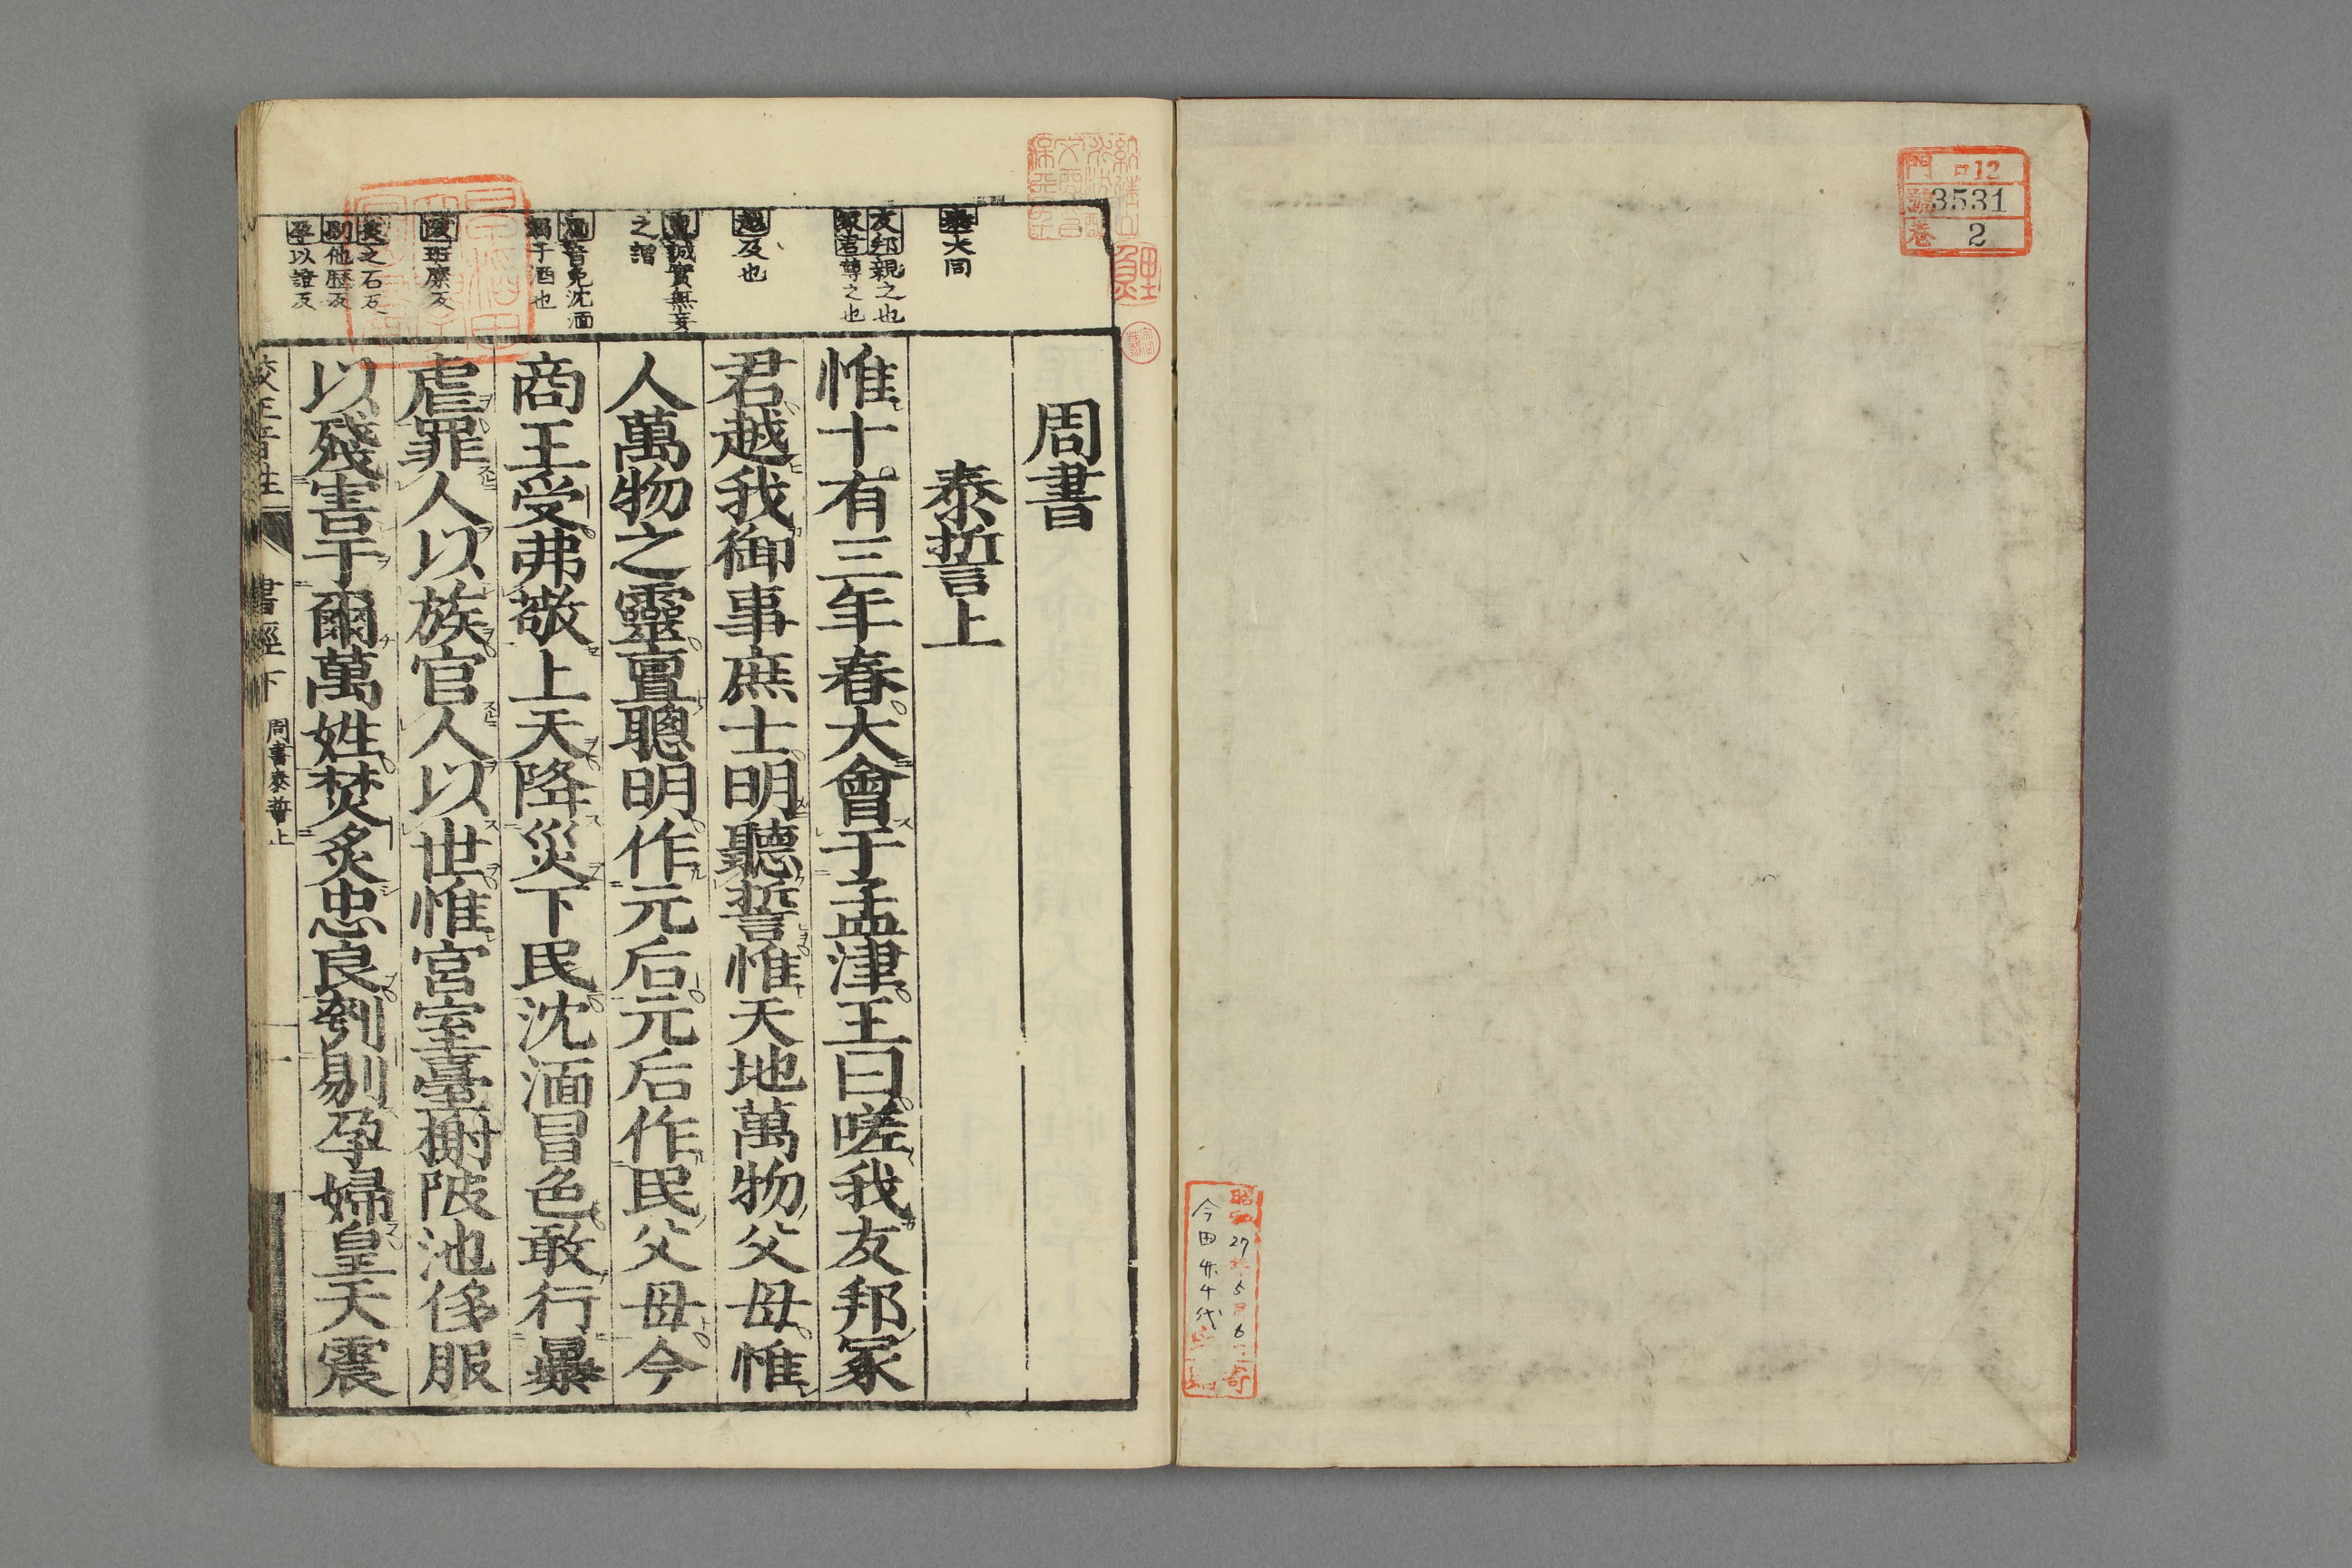 門 ロ12
號 3531
卷 2
昭和27年5月6日
今田卅千代
寄
周書
泰誓上
惟十有三年春大會于孟津王曰嗟我友邦冢
君越我御事庶士明聽誓惟天地萬物父母惟
人萬物之靈亶聰明作元后元后作民父母今
商王受弗敬上天降災下民沈湎冒色敢行暴
虐罪人以族官人以世惟宮室臺榭陂池侈服
以殘害于爾萬姓焚炙忠良刳剔孕婦皇天震
泰大同
友邦親之也
冢君尊之也
越及也
亶誠實無妄
之謂
湎音免沈湎
溺于酒也
陂班糜反
炙之石反
剔他歷反
孕以證反
校正音註
書經下
周書泰誓上
一